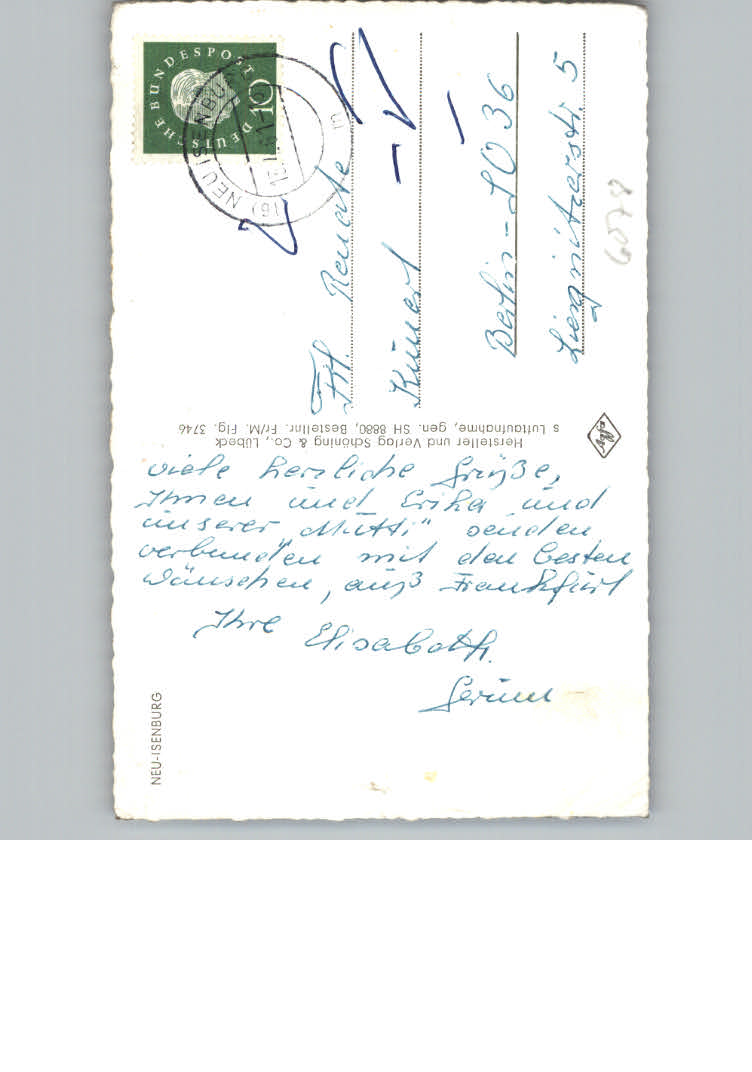 viele herzliche Grüße,
Ihnen und Erika und
unserer „Mutti“ senden
verbunden mit den besten
Wünschen, auß Frankfurt
Ihre Elisabeth
NEU-ISENBURG
Hersteller und Verlag Schöning & Co., Lübeck
s Luftaufnahme, gen. SH 8880, Bestellnr. Fr/M. Flg. 3746
Agfa
DEUTSCHE BUNDESPOST
10
(16) NEU ISENBURG
Frl. Renate
Künert
Berlin-SO 36
Liegnitzerstr. 5